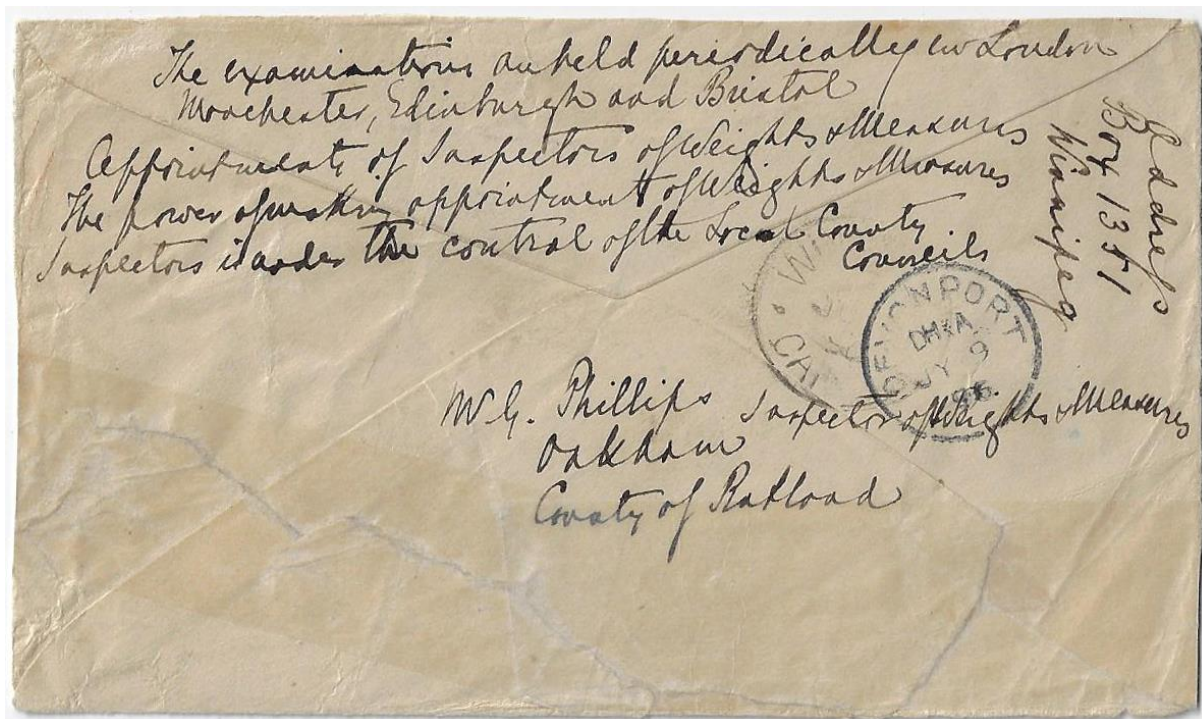 The examinations are held periodically in London
Manchester, Edinburgh and Bristol
Appointments of Inspectors of Weights & Measures
The power of making appointment of Weights & Measures
Inspectors is under the control of the Local County
Councils
Address
Box 1351
Winnipeg
DEVONPORT
JY 9
96
W. G. Phillips Inspector of Weights & Measures
Oakham
County of Rutland